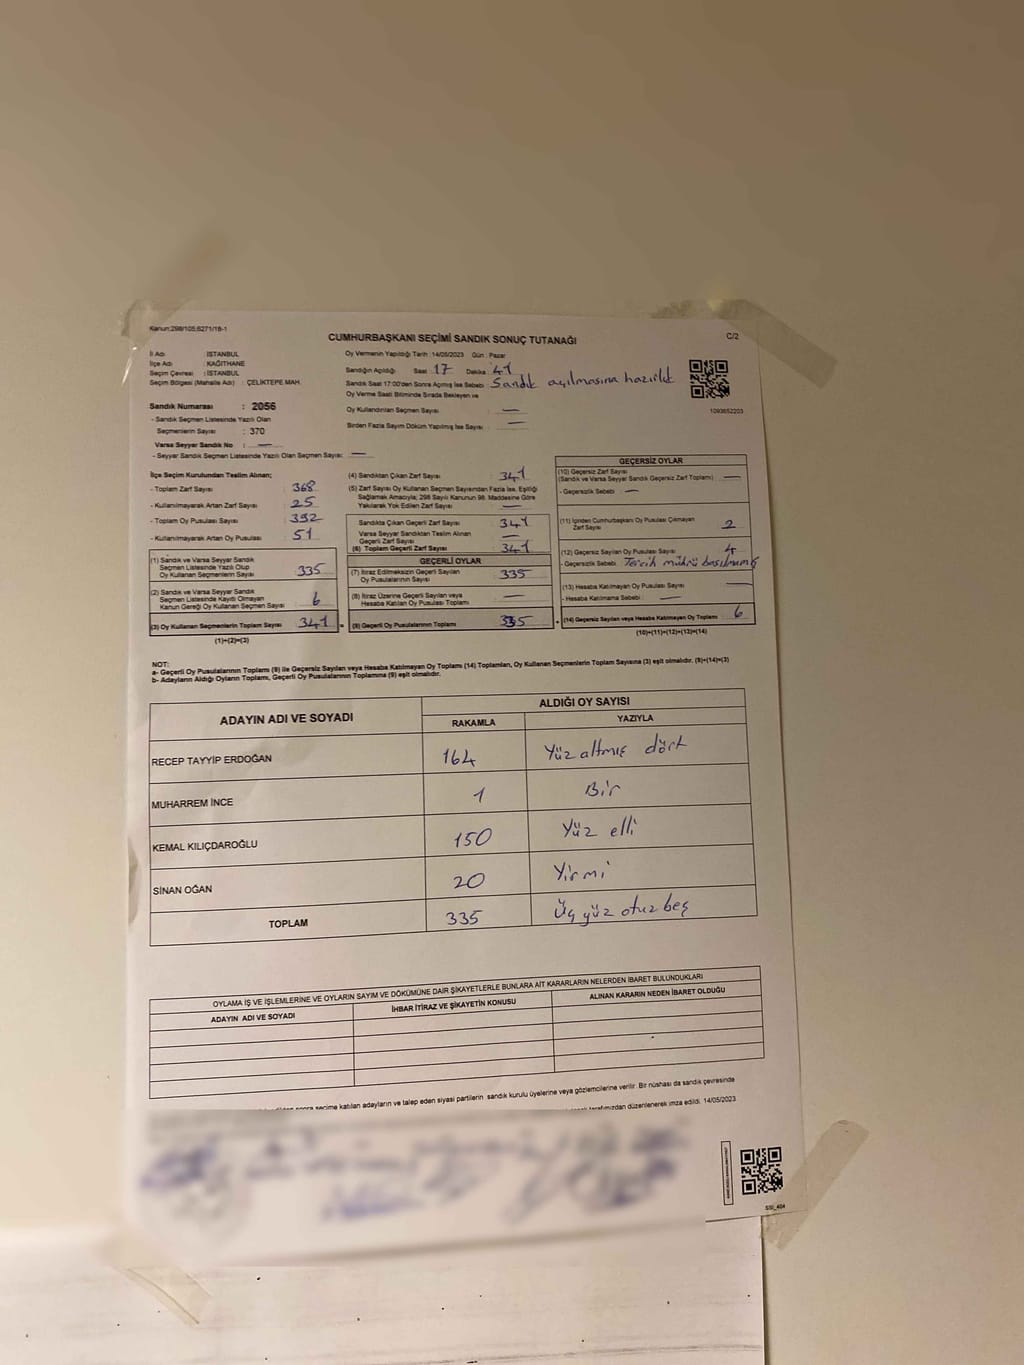 Kanun:298/105;6271/18-1
C/2
CUMHURBAŞKANI SEÇİMİ SANDIK SONUÇ TUTANAĞI
İl Adı : İSTANBUL
İlçe Adı : KAĞITHANE
Seçim Çevresi : İSTANBUL
Seçim Bölgesi (Mahalle Adı) : ÇELİKTEPE MAH.
Sandık Numarası : 2056
- Sandık Seçmen Listesinde Yazılı Olan
Seçmenlerin Sayısı : 370
Varsa Seyyar Sandık No : —
- Seyyar Sandık Seçmen Listesinde Yazılı Olan Seçmen Sayısı: —
Oy Vermenin Yapıldığı Tarih : 14/05/2023 Gün : Pazar
Sandığın Açıldığı Saat : 17 Dakika : 41
Sandık Saat 17:00'den Sonra Açılmış İse Sebebi : Sandık açılmasına hazırlık
Oy Verme Saati Bitiminde Sırada Bekleyen ve
Oy Kullandırılan Seçmen Sayısı : —
Birden Fazla Sayım Döküm Yapılmış İse Sayısı : —
1093652203
İlçe Seçim Kurulundan Teslim Alınan;
- Toplam Zarf Sayısı : 368
- Kullanılmayarak Artan Zarf Sayısı : 25
- Toplam Oy Pusulası Sayısı : 392
- Kullanılmayarak Artan Oy Pusulası : 51
(1) Sandık ve Varsa Seyyar Sandık
Seçmen Listesinde Yazılı Olup
Oy Kullanan Seçmenlerin Sayısı : 335
(2) Sandık ve Varsa Seyyar Sandık
Seçmen Listesinde Kayıtlı Olmayan
Kanun Gereği Oy Kullanan Seçmen Sayısı : 6
(3) Oy Kullanan Seçmenlerin Toplam Sayısı : 341 =
(1)+(2)=(3)
(4) Sandıktan Çıkan Zarf Sayısı : 341
(5) Zarf Sayısı Oy Kullanan Seçmen Sayısından Fazla İse, Eşitliği
Sağlamak Amacıyla; 298 Sayılı Kanunun 98. Maddesine Göre
Yakılarak Yok Edilen Zarf Sayısı : —
Sandıkta Çıkan Geçerli Zarf Sayısı : 341
Varsa Seyyar Sandıktan Teslim Alınan
Geçerli Zarf Sayısı : —
(6) Toplam Geçerli Zarf Sayısı : 341
GEÇERLİ OYLAR
(7) İtiraz Edilmeksizin Geçerli Sayılan
Oy Pusulalarının Sayısı : 335
(8) İtiraz Üzerine Geçerli Sayılan veya
Hesaba Katılan Oy Pusulası Toplamı : —
(9) Geçerli Oy Pusulalarının Toplamı : 335 +
GEÇERSİZ OYLAR
(10) Geçersiz Zarf Sayısı
(Sandık ve Varsa Seyyar Sandık Geçersiz Zarf Toplamı) : —
- Geçersizlik Sebebi : —
(11) İçinden Cumhurbaşkanı Oy Pusulası Çıkmayan
Zarf Sayısı : 2
(12) Geçersiz Sayılan Oy Pusulası Sayısı : 4
- Geçersizlik Sebebi : Tercih mührü basılmamış
(13) Hesaba Katılmayan Oy Pusulası Sayısı : —
- Hesaba Katılmama Sebebi : —
(14) Geçersiz Sayılan veya Hesaba Katılmayan Oy Toplamı : 6
(10)+(11)+(12)+(13)=(14)
NOT:
a- Geçerli Oy Pusulalarının Toplamı (9) ile Geçersiz Sayılan veya Hesaba Katılmayan Oy Toplamı (14) Toplamları, Oy Kullanan Seçmenlerin Toplam Sayısına (3) eşit olmalıdır. (9)+(14)=(3)
b- Adayların Aldığı Oyların Toplamı, Geçerli Oy Pusulalarının Toplamına (9) eşit olmalıdır.
ADAYIN ADI VE SOYADI ALDIĞI OY SAYISI
RAKAMLA YAZIYLA
RECEP TAYYİP ERDOĞAN 164 Yüz altmış dört
MUHARREM İNCE 1 Bir
KEMAL KILIÇDAROĞLU 150 Yüz elli
SİNAN OĞAN 20 Yirmi
TOPLAM 335 Üç yüz otuz beş
OYLAMA İŞ VE İŞLEMLERİNE VE OYLARIN SAYIM VE DÖKÜMÜNE DAİR ŞİKAYETLERLE BUNLARA AİT KARARLARIN NELERDEN İBARET BULUNDUKLARI
ADAYIN ADI VE SOYADI İHBAR İTİRAZ VE ŞİKAYETİN KONUSU ALINAN KARARIN NEDEN İBARET OLDUĞU
sonra seçime katılan adayların ve talep eden siyasi partilerin sandık kurulu üyelerine veya gözlemcilerine verilir. Bir nüshası da sandık çevresinde
tarafımızdan düzenlenerek imza edildi. 14/05/2023
SSI_404